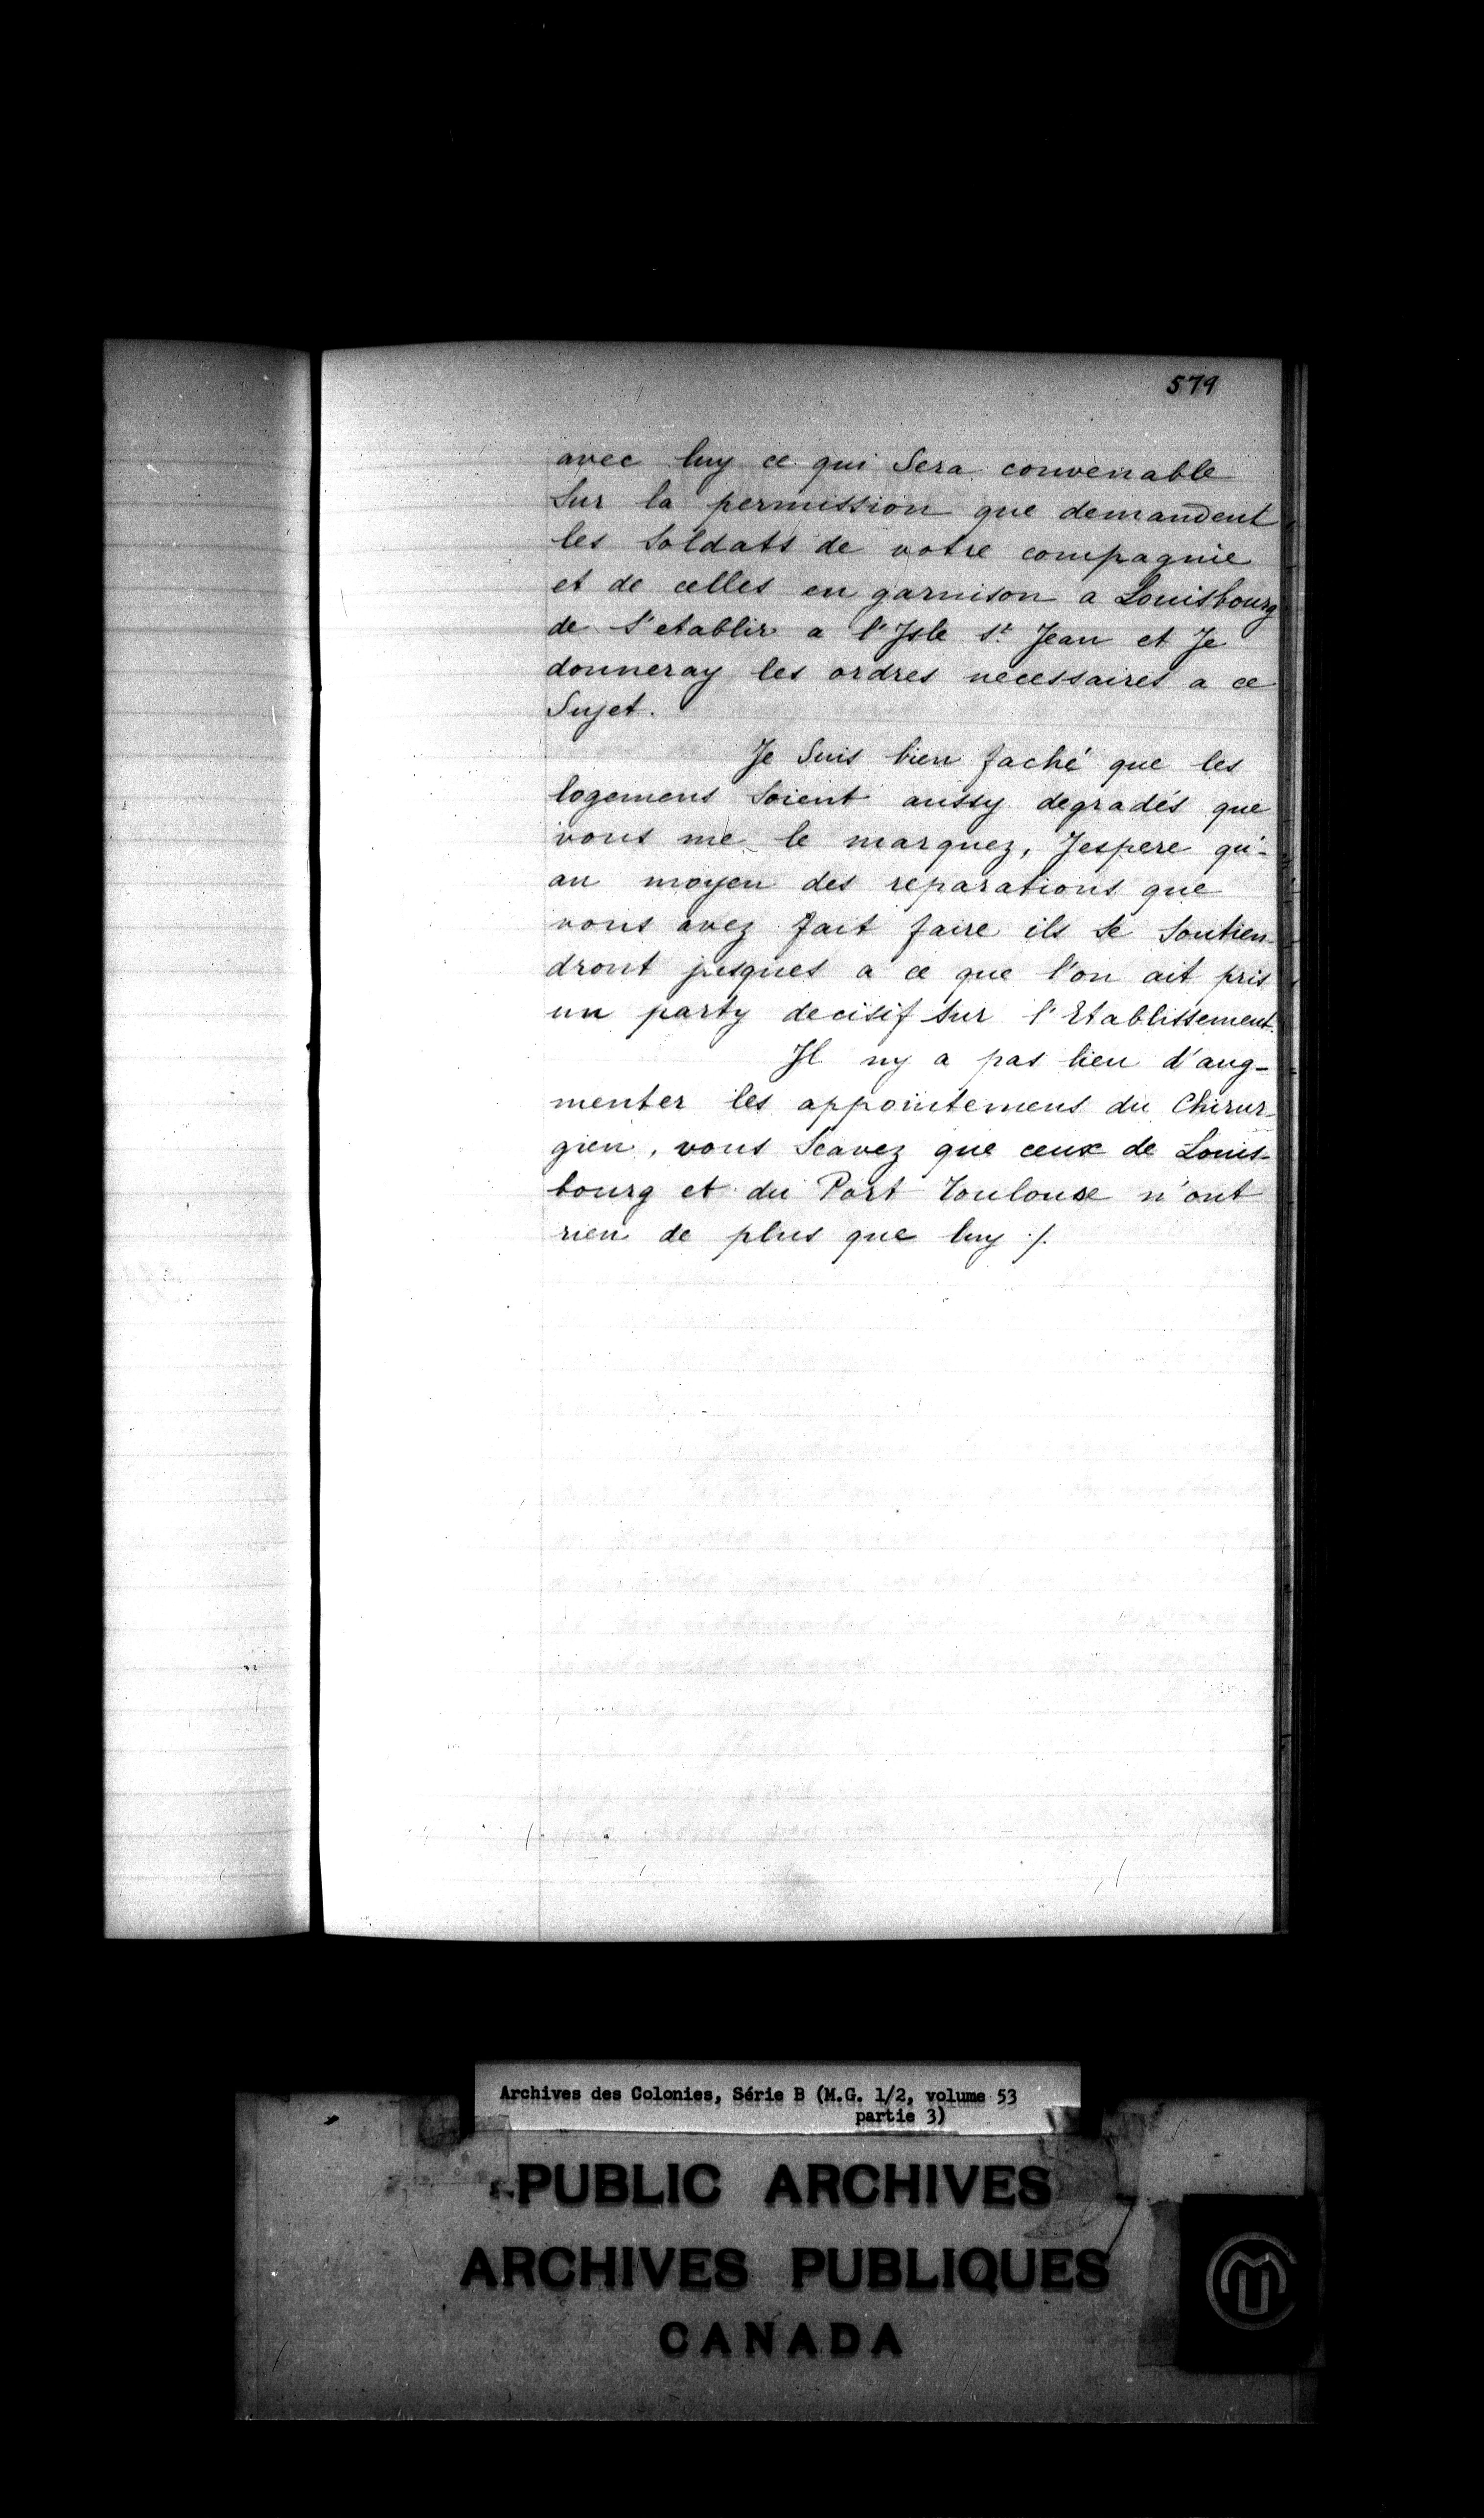 579
avec luy ce qui Sera convenable
Sur la permission que demandent
les Soldats de votre compagnie
et de celles en garnison a Louisbourg
de S'etablir a l'Isle St. Jean et Je
donneray les ordres necessaires a ce
Sujet.
Je Suis bien faché que les
logemens Soient aussy degradés que
vous me le marquez, Jespere qu'-
au moyen des reparations que
vous avez fait faire ils Se Soutien-
dront jusques a ce que l'on ait pris
un party decisif Sur l'Etablissement.
Il ny a pas lieu d'aug-
menter les appointemens du Chirur-
gien, vous Scavez que ceux de Louis-
bourg et du Port Toulouse n'ont
rien de plus que luy ./.
Archives des Colonies, Série B (M.G. 1/2, volume 53
partie 3)
PUBLIC ARCHIVES
ARCHIVES PUBLIQUES
CANADA